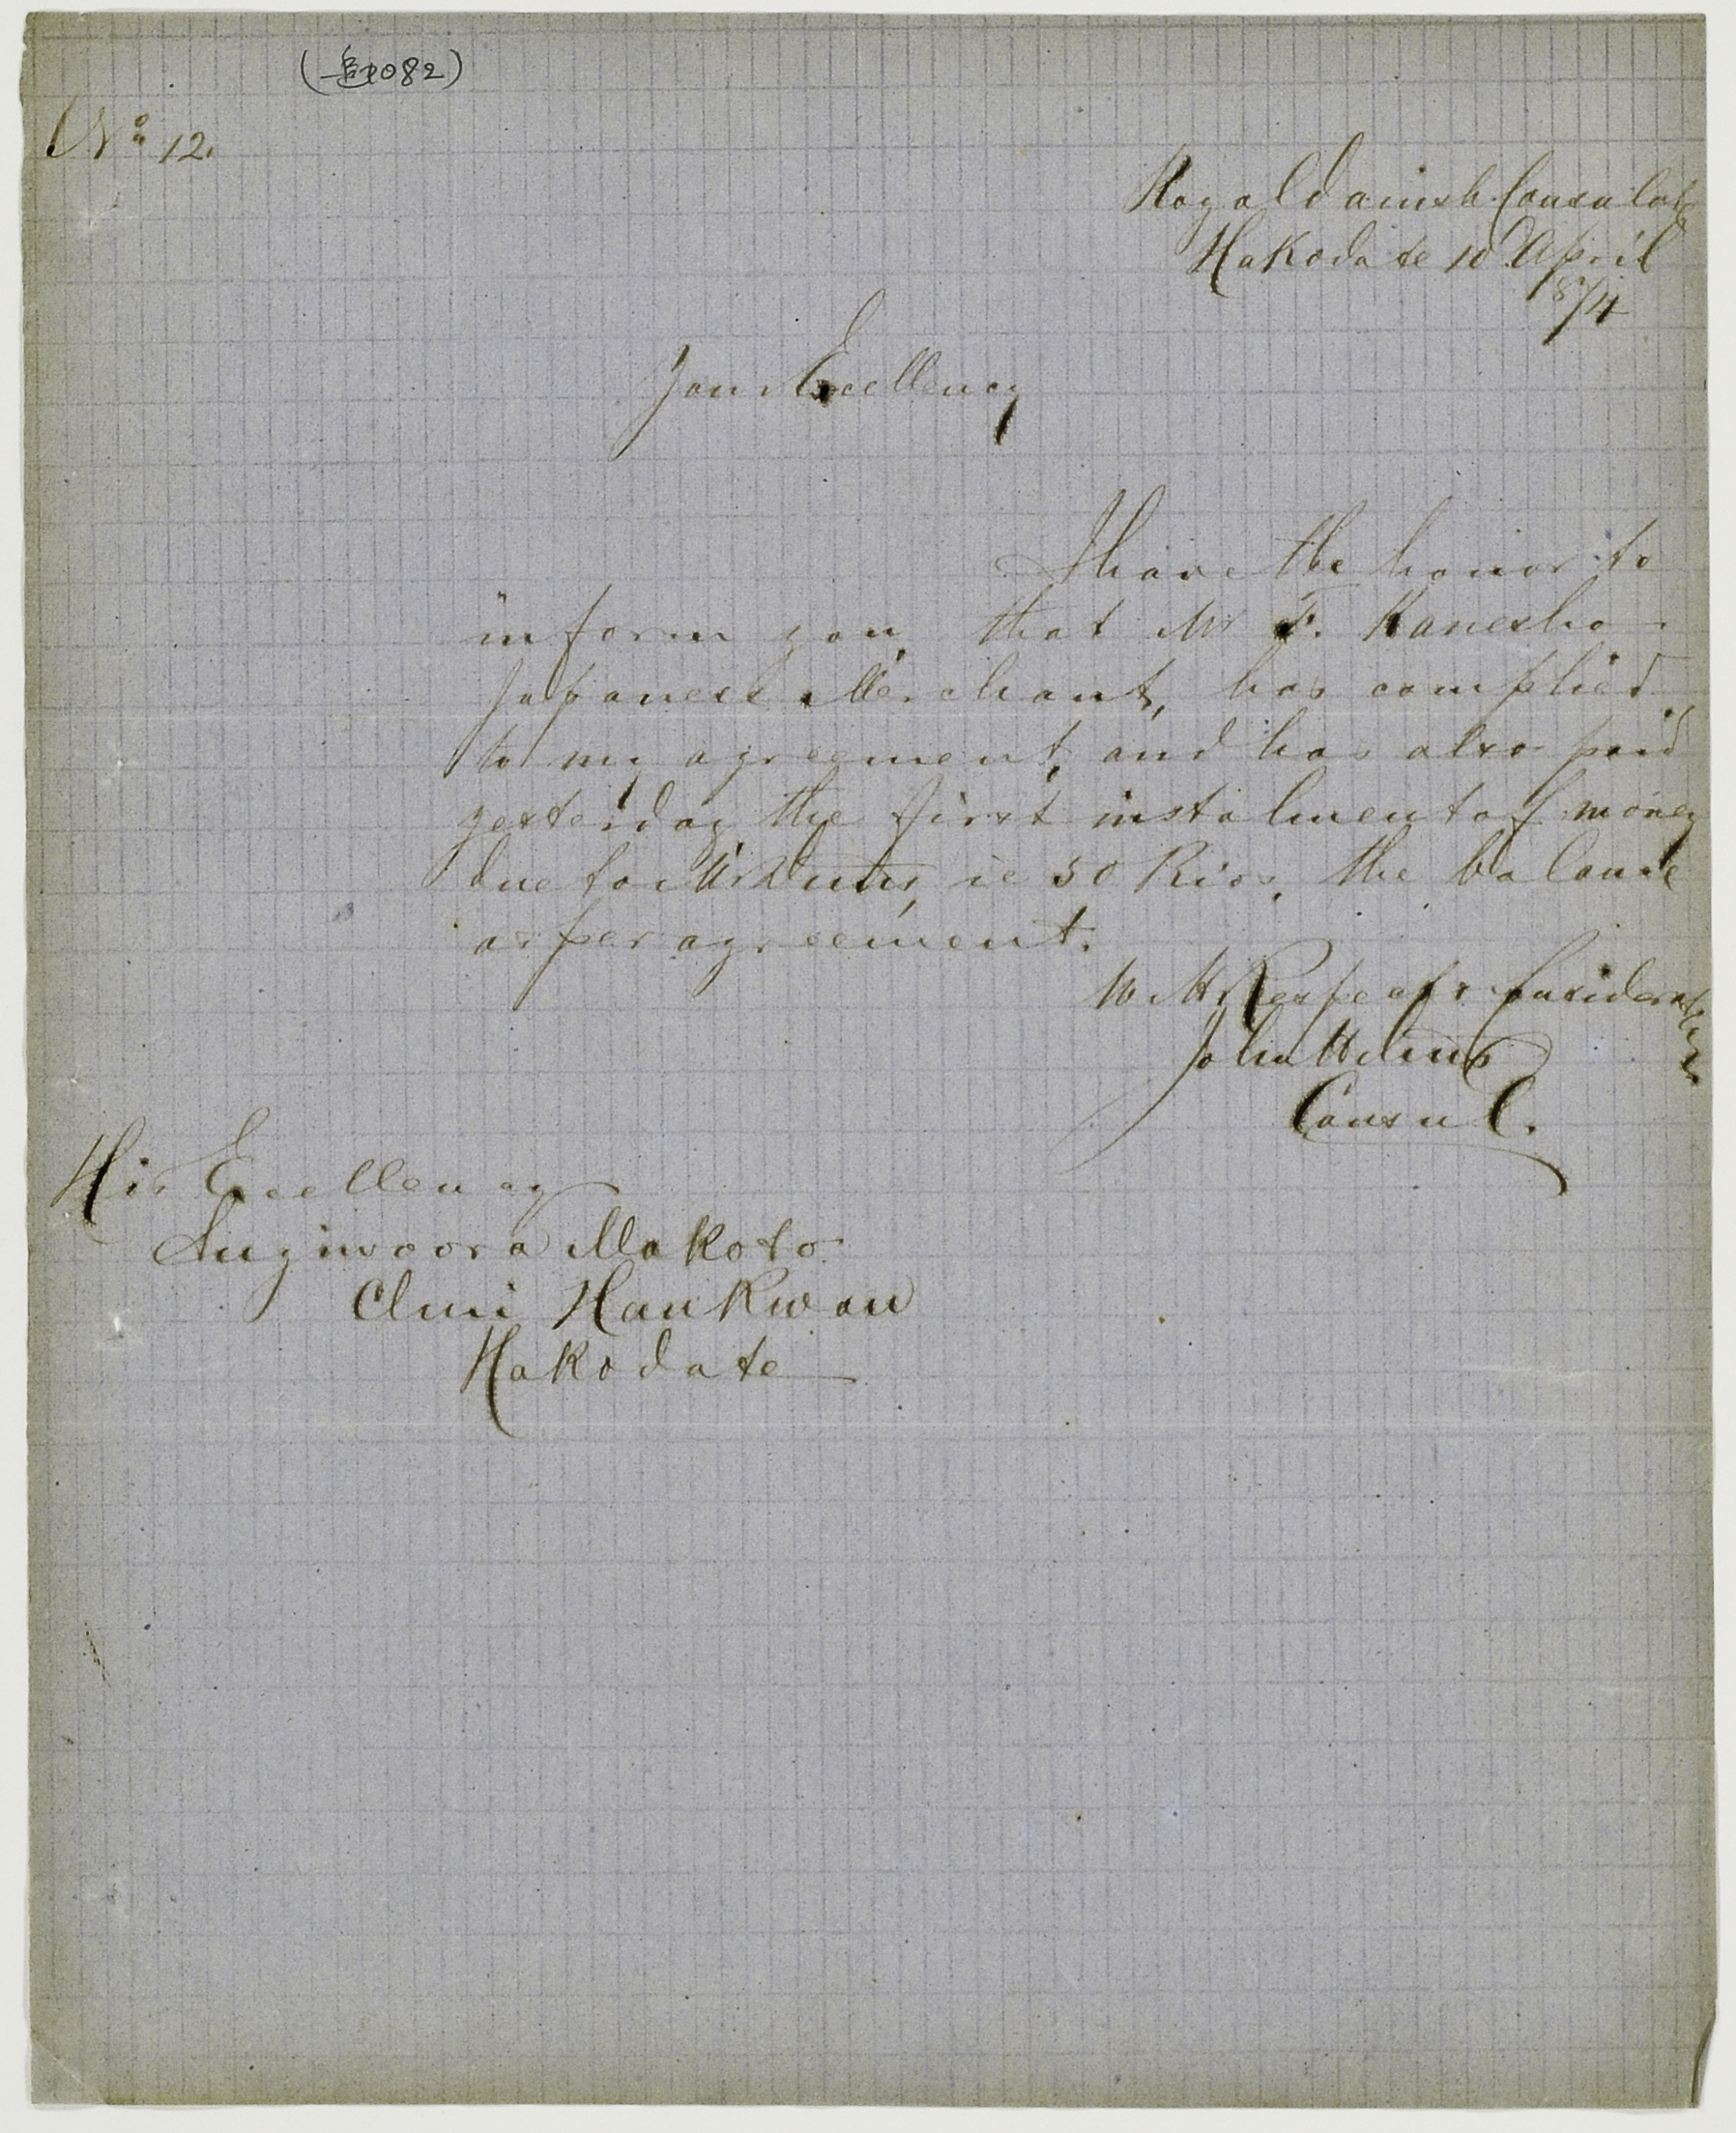 (追2082)
No 12.
Royal danish Consulate
Hakodate 10 April
874
Your Excellency
I have the honor to
inform you, that Mr F. Kanesho
Japanese Merchant, has complied
to my agreement, and has also paid
yesterday the first instalment of money
due to Mr ie 50 Rios, the balance
as per agreement.
With Respect & Consideration
John Henson
Consul.
His Excellency
Sugiwoora Makoto
Chui Hankwan
Hakodate